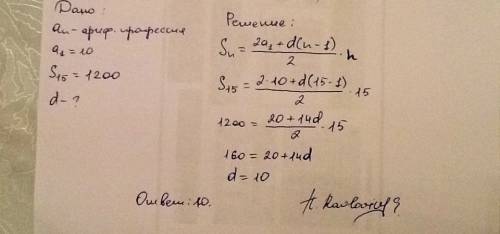 Дано:
an - ариф. прогрессия
a₁ = 10
S₁₅ = 1200
d - ?
Решение:
Sn = (2a₁ + d(n-1))/2 · n
S₁₅ = (2·10 + d(15-1))/2 · 15
1200 = (20 + 14d)/2 · 15
160 = 20 + 14d
d = 10
Ответ: 10.